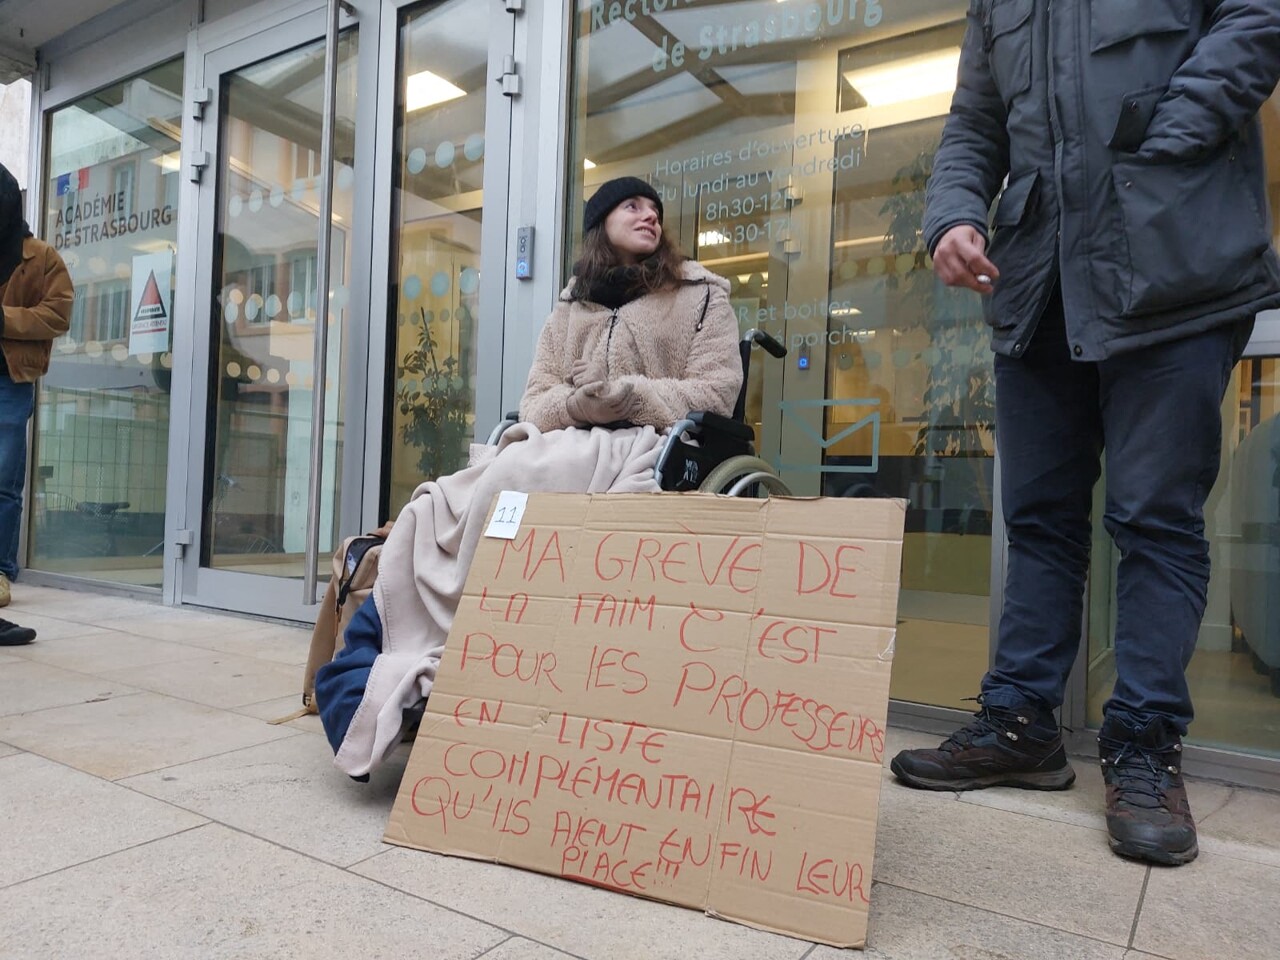 Rectorat
de Strasbourg
Horaires d'ouverture
du lundi au vendredi
8h30-12h
et boites
porche
ACADÉMIE
DE STRASBOURG
11
MA GRÈVE DE
LA FAIM C'EST
POUR lES PROFESSEURS
EN LISTE
COMPLÉMENTAIRE
QU'ILS AIENT ENFIN LEUR
PlACE!!!